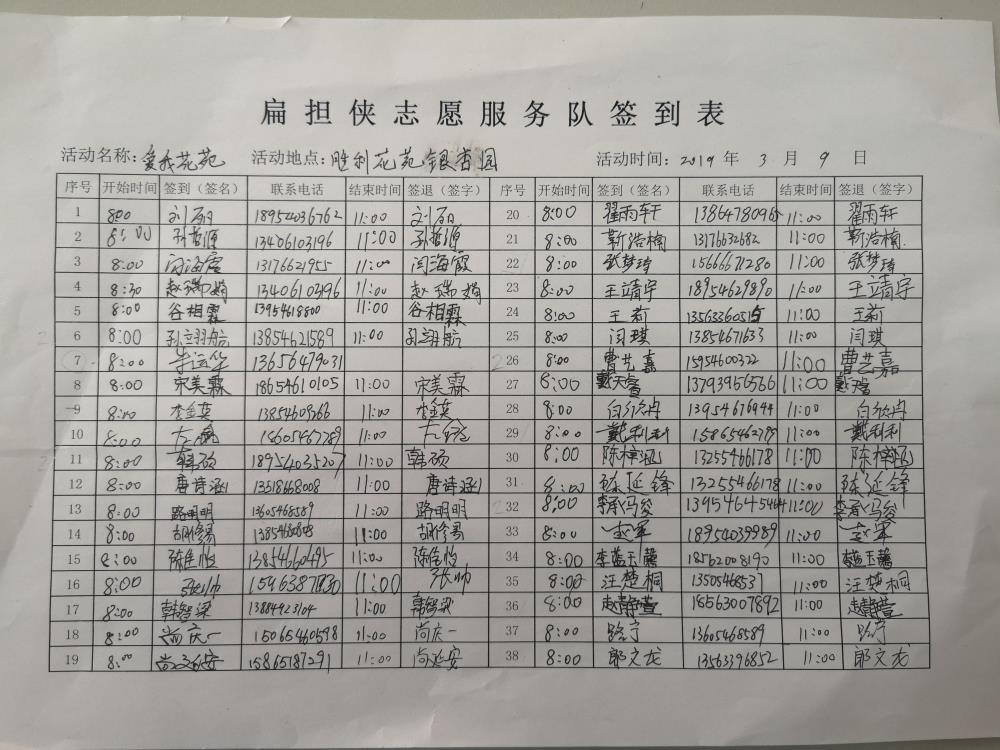 扁担侠志愿服务队签到表
活动名称：爱我花苑 活动地点：胜利花苑银杏园 活动时间：2019 年 3 月 9 日
序号 开始时间 签到（签名） 联系电话 结束时间 签退（签字） 序号 开始时间 签到（签名） 联系电话 结束时间 签退（签字）
1 8:00 刘丽 18954036762 11:00 刘丽 20 8:00 翟雨轩 13864780965 11:00 翟雨轩
2 8:00 孙哲源 13406103196 11:00 孙哲源 21 8:00 靳浩楠 13176632682 11:00 靳浩楠
3 8:00 闫海霞 13176621955 11:00 闫海霞 22 8:00 张梦琦 15666671280 11:00 张梦琦
4 8:30 赵瑞娟 13406103196 11:00 赵瑞娟 23 8:00 王靖宇 18954629890 11:00 王靖宇
5 8:00 谷相霖 13954618800 11:00 谷相霖 24 8:00 王莉 13563360515 11:00 王莉
6 8:00 孙翊航 13854621589 11:00 孙翊航 25 8:00 闫琪 13854671633 11:00 闫琪
7 8:00 13656479031 26 8:00 曹艺嘉 15954600322 11:00 曹艺嘉
8 8:00 宋美霖 18654610105 11:00 宋美霖 27 8:00 13793956566 11:00
9 8:00 李金英 11:00 李金英 28 8:00 白欣冉 13954676944 11:00 白欣冉
10 8:00 18605467789 11:00 29 8:00 戴利利 11:00 戴利利
11 8:00 韩硕 18954035207 11:00 韩硕 30 8:00 陈梓涵 13255466178 11:00 陈梓涵
12 8:00 唐诗涵 13518668008 11:00 唐诗涵 31 8:00 陈延锋 13255466178 11:00 陈延锋
13 8:00 路明明 13605468589 11:00 路明明 32 8:00 11:00
14 8:00 胡修易 11:00 胡修易 33 8:00 赵军 18954039989 11:00 赵军
15 8:00 陈佳怡 13854660495 11:00 陈佳怡 34 8:00 李蓝玉馨 18562008190 11:00
16 8:00 张帅 11:00 张帅 35 8:00 汪楚桐 13505468537 11:00 汪楚桐
17 8:00 韩智梁 13884923104 11:00 韩智梁 36 8:00 赵静萱 18563007892 11:00 赵静萱
18 8:00 尚庆一 15065460598 11:00 尚庆一 37 8:00 路宁 13605468589 11:00 路宁
19 8:00 尚延安 15865187291 11:00 尚延安 38 8:00 郎文龙 13563396852 11:00 郎文龙